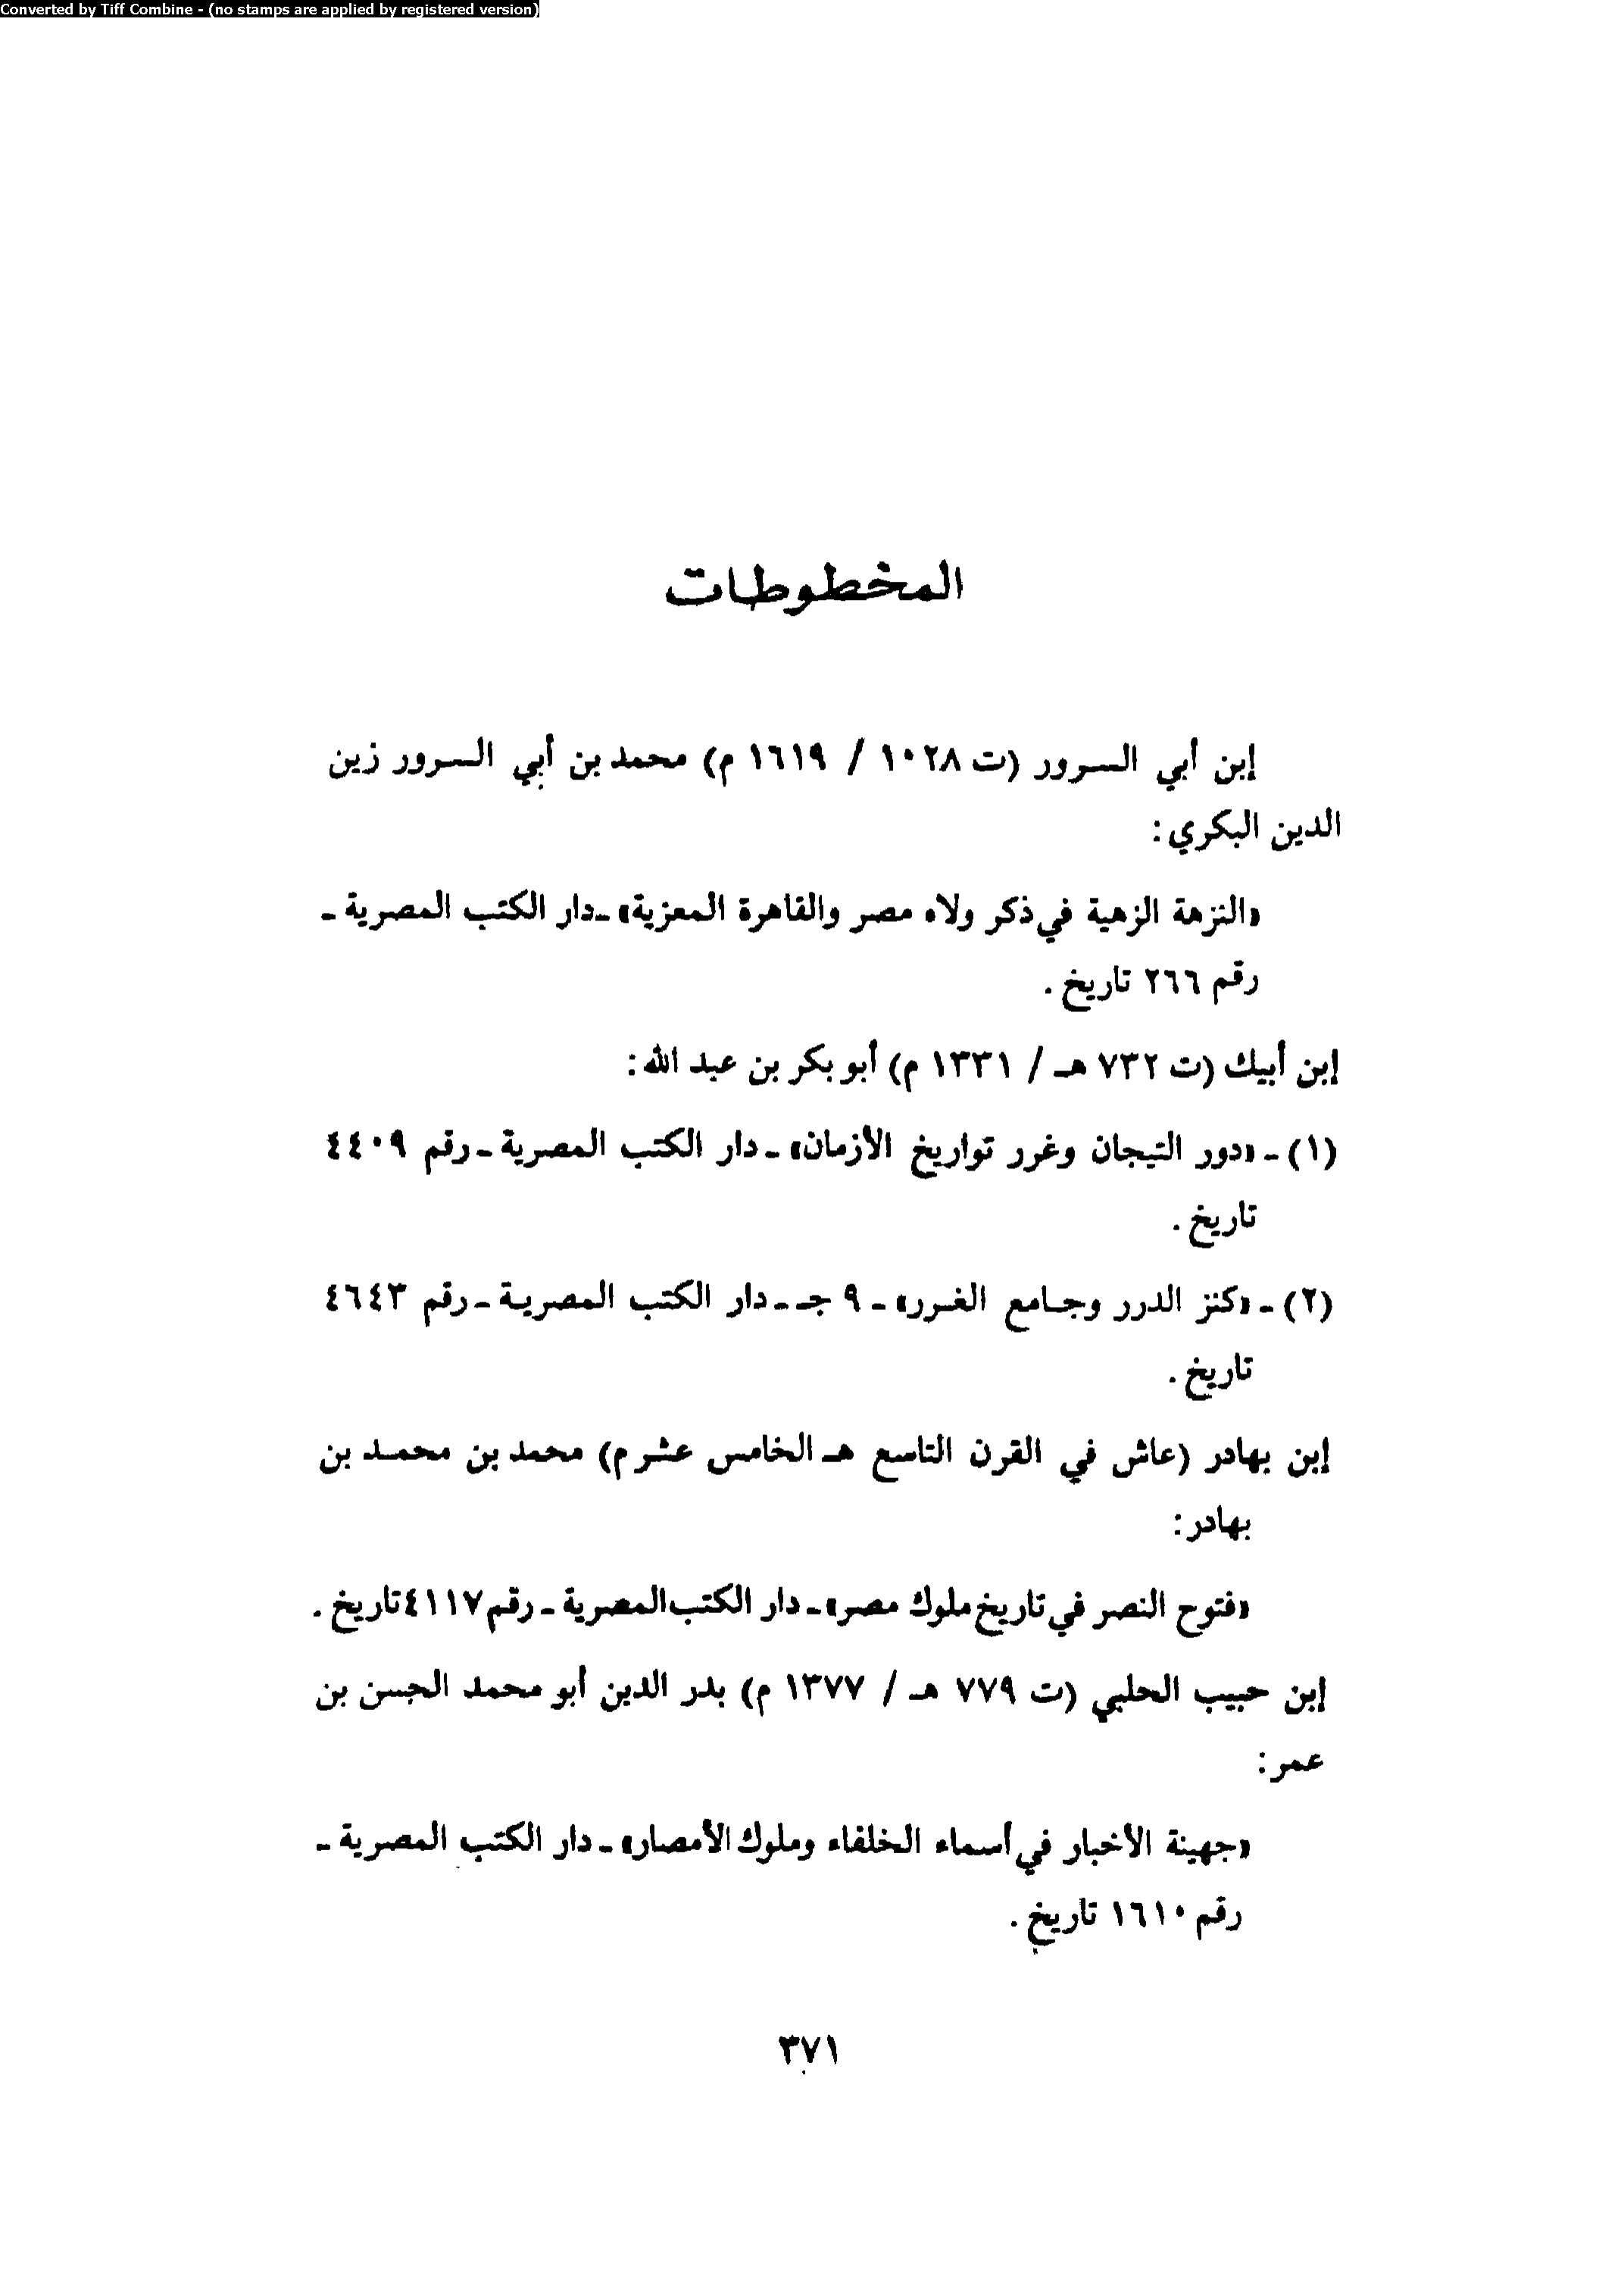 Converted by Tiff Combine - (no stamps are applied by registered version)
المخطوطات
إبن أبي السرور (ت ١٠٢٨ / ١٦١٩ م) محمد بن أبي السرور زين
الدين البكري:
«النزهة الزهية في ذكر ولاه مصر والقاهرة المعزية» ـ دار الكتب المصرية ـ
رقم ٢٦٦ تاريخ.
إبن أبيك (ت ٧٣٢ هـ / ١٣٣١ م) أبو بكر بن عبد الله:
(١) ـ «دور التيجان وغرر تواريخ الأزمان» ـ دار الكتب المصرية ـ رقم ٤٤٠٩
تاريخ.
(٢) ـ «كنز الدرر وجامع الغرر» ـ ٩ جـ ـ دار الكتب المصرية ـ رقم ٤٦٤٣
تاريخ.
إبن بهادر (عاش في القرن التاسع هـ الخامس عشر م) محمد بن محمد بن
بهادر:
«فتوح النصر في تاريخ ملوك مصر» ـ دار الكتب المصرية ـ رقم ٤١١٧ تاريخ.
إبن حبيب الحلبي (ت ٧٧٩ هـ / ١٣٧٧ م) بدر الدين أبو محمد الحسن بن
عمر:
«جهينة الأخبار في أسماء الخلفاء وملوك الأمصار» ـ دار الكتب المصرية ـ
رقم ١٦١٠ تاريخ.
٣٧١